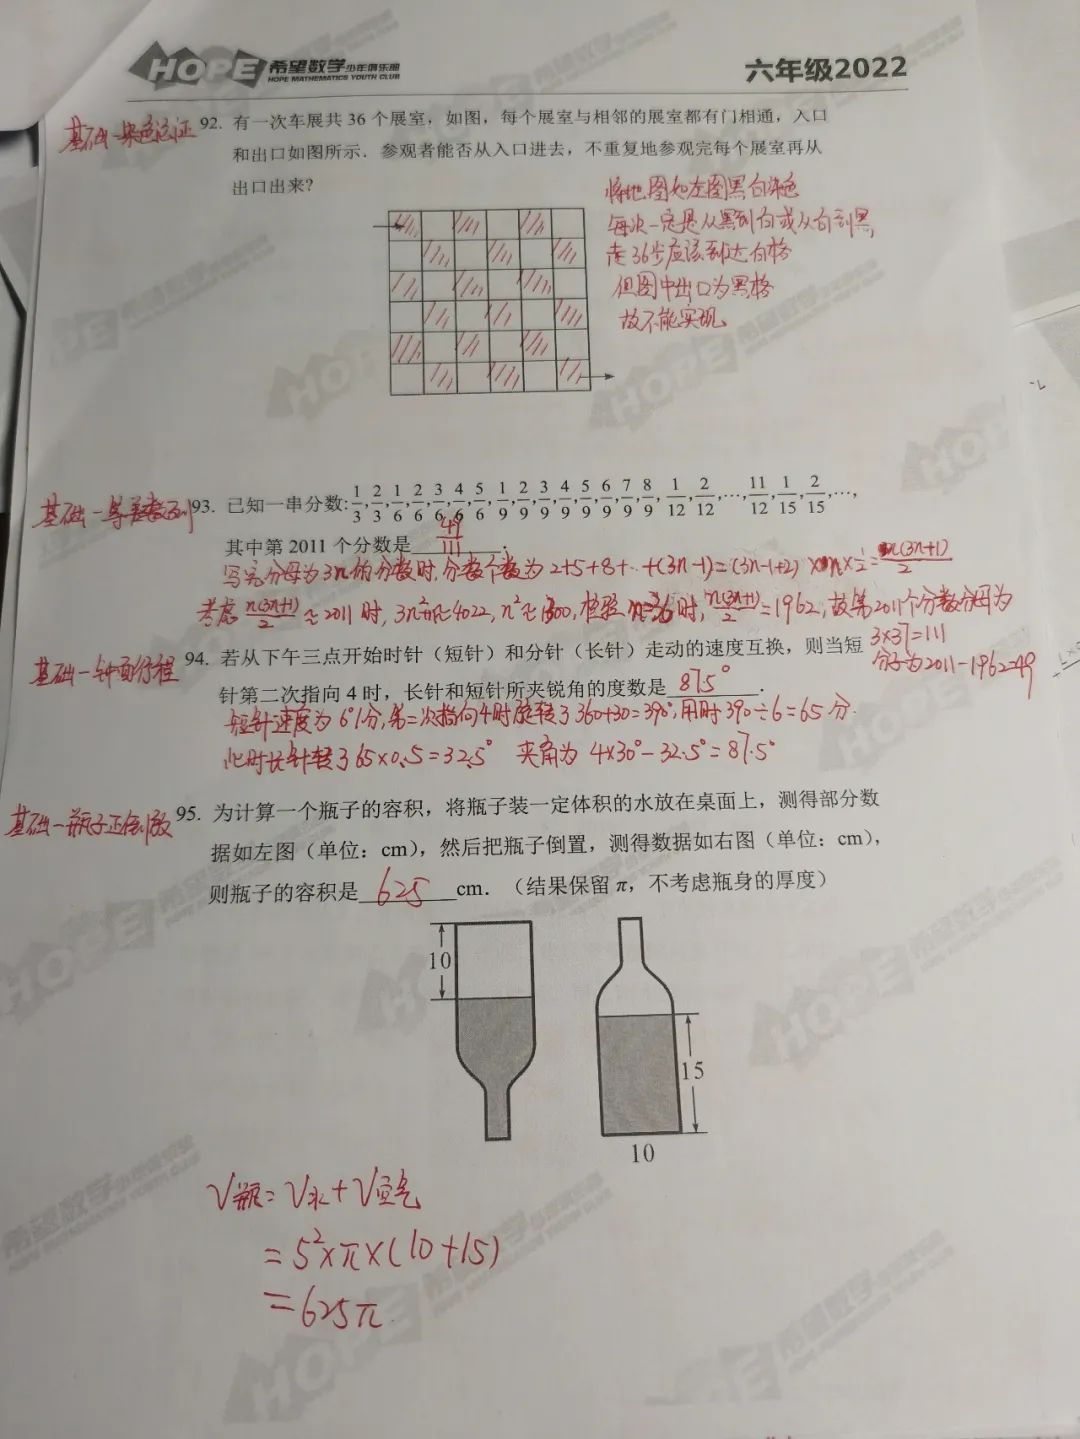 HOPE 希望数学少年俱乐部
HOPE MATHEMATICS YOUTH CLUB
六年级2022
基础-染色论证
92. 有一次车展共 36 个展室，如图，每个展室与相邻的展室都有门相通，入口
和出口如图所示．参观者能否从入口进去，不重复地参观完每个展室再从
出口出来？
将地图如左图黑白染色
每次一定是从黑到白或从白到黑，
走36步应该到达白格
但图中出口为黑格
故不能实现
基础-等差数列
93. 已知一串分数: 1/3, 2/3, 1/6, 2/6, 3/6, 4/6, 5/6, 1/9, 2/9, 3/9, 4/9, 5/9, 6/9, 7/9, 8/9, 1/12, 2/12, …, 11/12, 1/15, 2/15, …,
其中第 2011 个分数是 49/111 ．
写完分母为3n的分数时,分数个数为 2+5+8+…+(3n-1)=(3n-1+2)×n×1/2=n(3n+1)/2
考虑 n(3n+1)/2 ≈ 2011 时, 3n²+n≈4022, n²≈1300, 检验 n=36时, n(3n+1)/2=1962, 故第2011个分数分母为
3×37=111
分子为2011-1962=49
基础-钟面行程
94. 若从下午三点开始时针（短针）和分针（长针）走动的速度互换，则当短
针第二次指向 4 时，长针和短针所夹锐角的度数是 87.5° ．
短针速度为 6°/分,第二次指向4时旋转了360+30=390°,用时390÷6=65分.
此时长针转了65×0.5=32.5° 夹角为 4×30°-32.5°=87.5°
基础-瓶子正倒放
95. 为计算一个瓶子的容积，将瓶子装一定体积的水放在桌面上，测得部分数
据如左图（单位：cm），然后把瓶子倒置，测得数据如右图（单位：cm），
则瓶子的容积是 625 cm．（结果保留 π，不考虑瓶身的厚度）
10
15
10
V瓶=V水+V空气
=5²×π×(10+15)
=625π